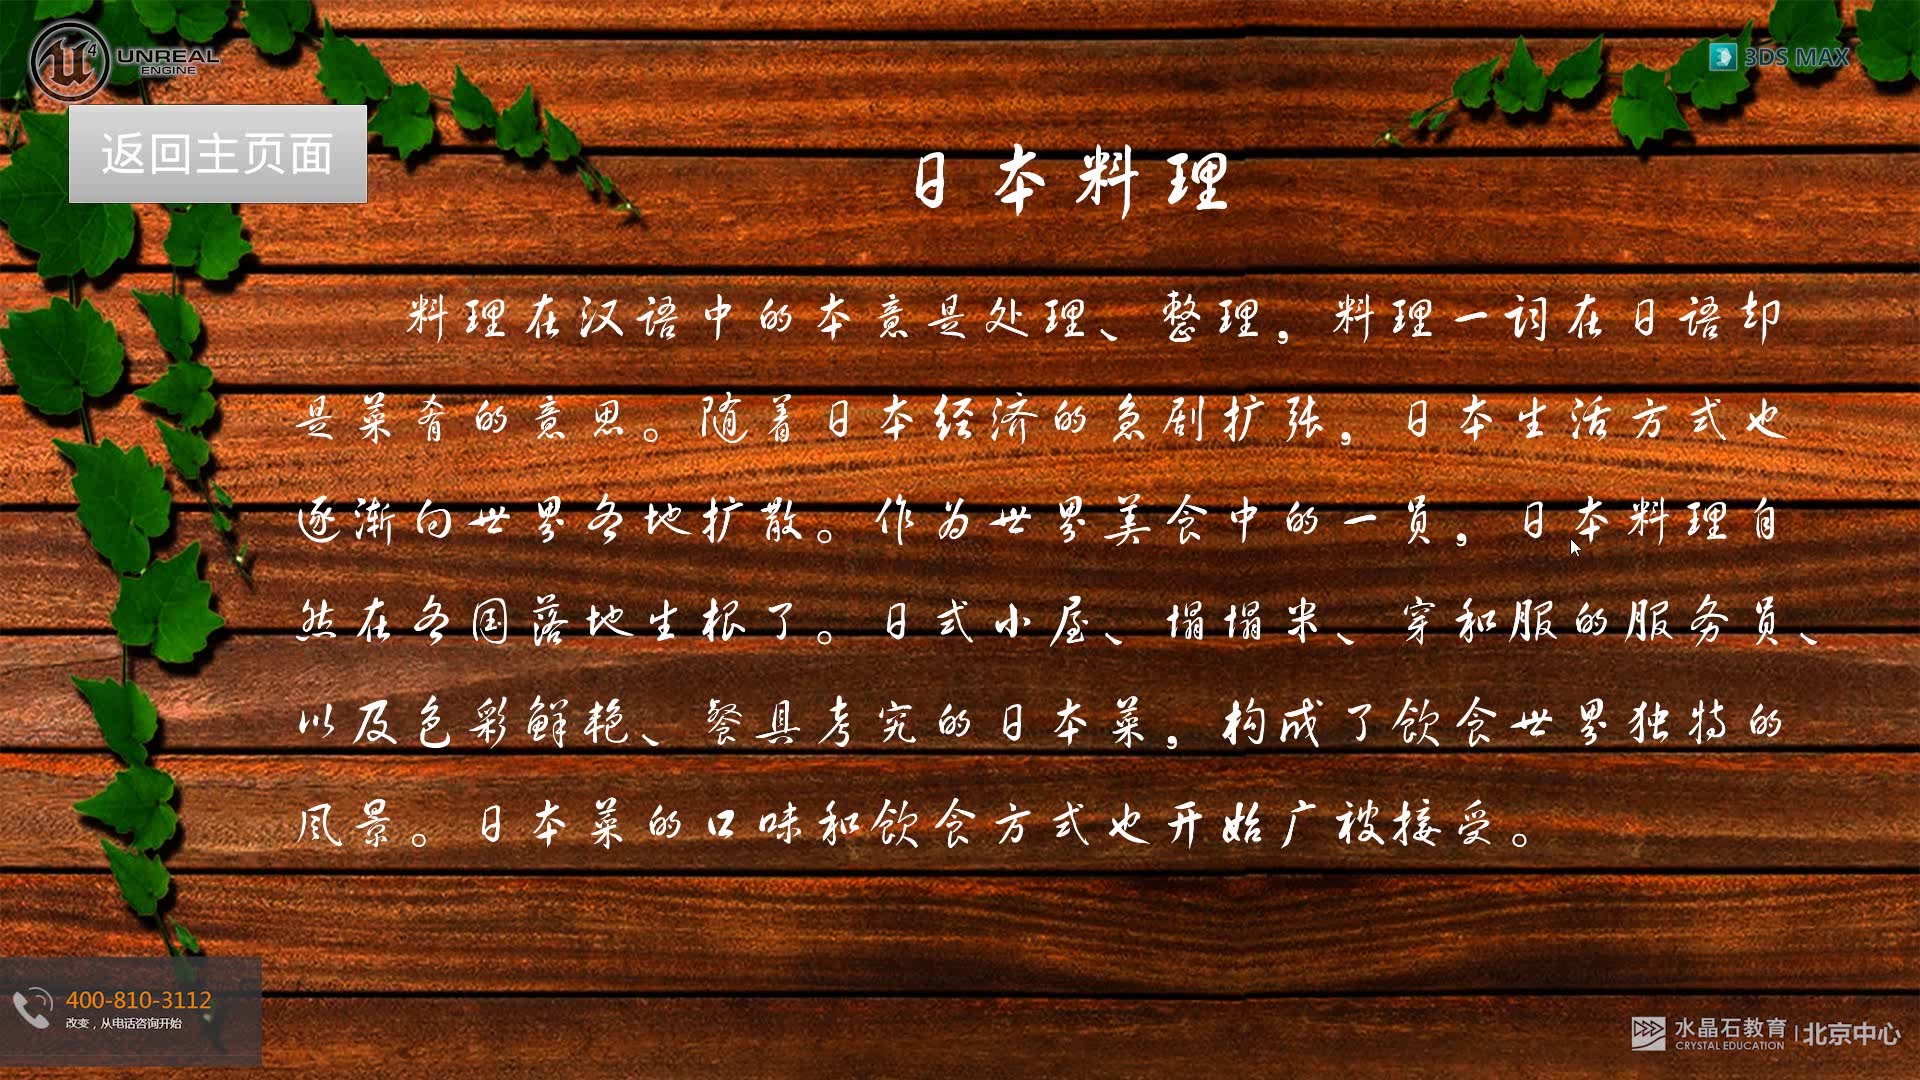 UNREAL
ENGINE
3DS MAX
返回主页面
日本料理
料理在汉语中的本意是处理、整理，料理一词在日语却
是菜肴的意思。随着日本经济的急剧扩张，日本生活方式也
逐渐向世界各地扩散。作为世界美食中的一员，日本料理自
然在各国落地生根了。日式小屋、榻榻米、穿和服的服务员、
以及色彩鲜艳、餐具考究的日本菜，构成了饮食世界独特的
风景。日本菜的口味和饮食方式也开始广被接受。
400-810-3112
改变，从电话咨询开始
水晶石教育 | 北京中心
CRYSTAL EDUCATION